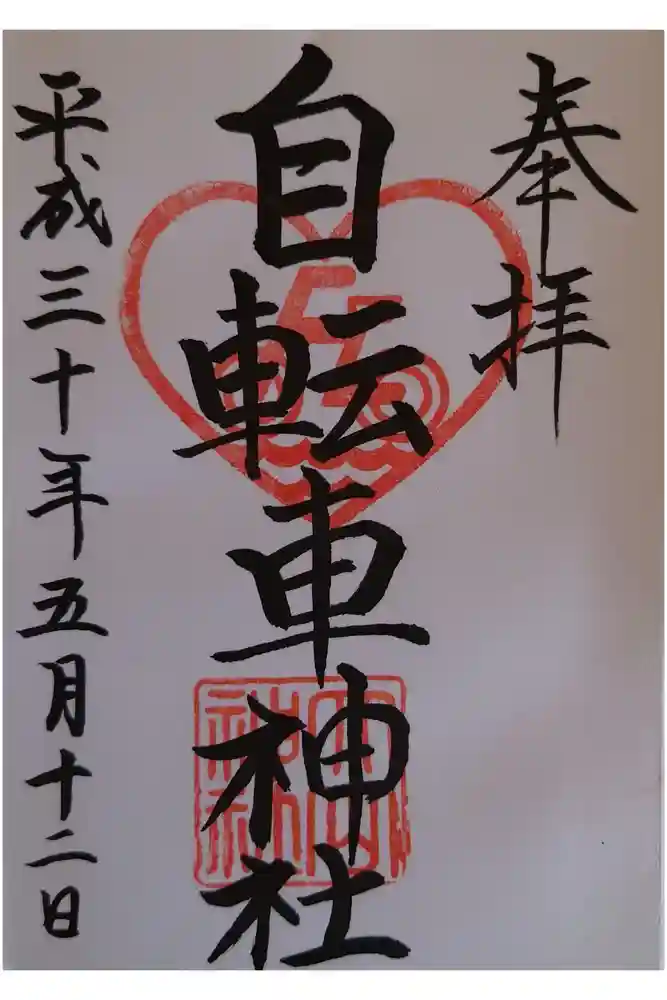 奉拝
自転車神社
平成三十年五月十二日